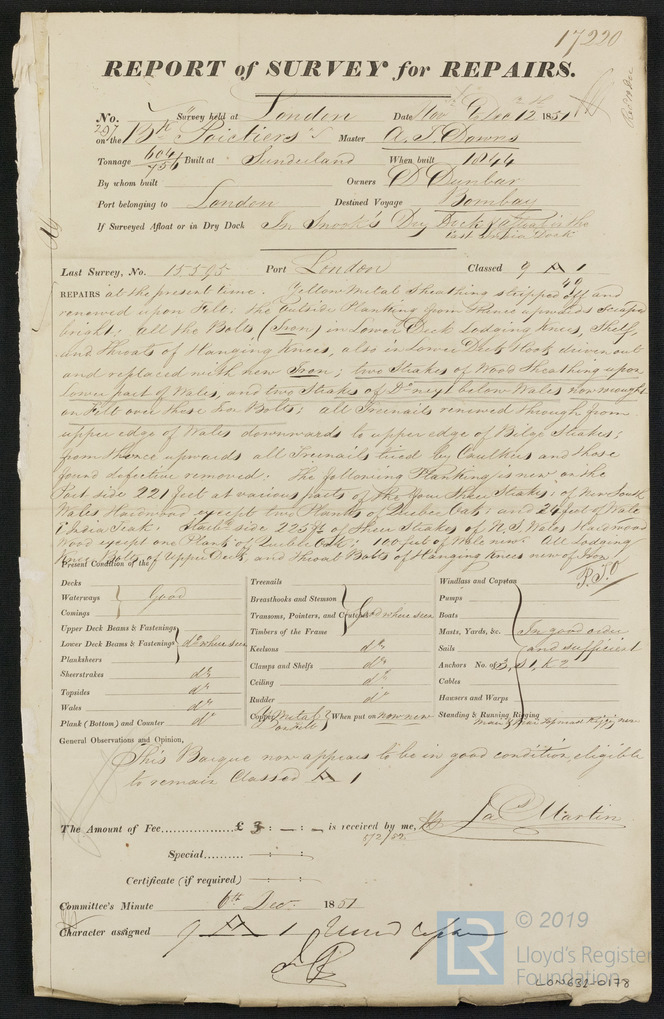 17220
REPORT of SURVEY for REPAIRS.
No. 297 Survey held at London Date Nov & Dec 12 1851
on the Bk Poictiers Master A. S. Downs
Tonnage 604/756 Built at Sunderland When built 1844
By whom built Owners D Dunbar
Port belonging to London Destined Voyage Bombay
If Surveyed Afloat or in Dry Dock In Snook's Dry Dock & afloat in the
East India Dock
Last Survey, No. 15595 Port London Classed 9 A 1
49
REPAIRS at the present time. Yellow Metal Sheathing stripped off and
renewed upon Felt: the Outside Planking from thence upwards scraped
bright: all the Bolts, (Iron) in Lower Deck Lodging Knees, Shelf,
and Throats of Hanging Knees, also in Lower Deck Hook driven out
and replaced with new Iron; two Strakes of Wood Sheathing upon
lower part of Wales, and two Strakes of Do next below Wales now wrought
on Felt over these Iron Bolts: all Treenails renewed through from
upper edge of Wales downwards to upper edge of Bilge Strakes;
from thence upwards all Treenails tried by Caulkers and those
found defective removed: The following Planking is new on the
Port side 221 feet at various parts of the four Sheer Strakes; of New South
Wales Hardwood except two Planks of Quebec Oak; and 24 feet of Wale
E India Teak: Starbd side 225 ft of Sheer Strakes of N. S. Wales Hardwood
Wood except one Plank of Quebec Oak: 100 feet of Wale new. All Lodging
Knee Bolts of Upper Deck, and Throat Bolts of Hanging Knees new of Iron
P.T.O
Present Condition of the
Decks
Waterways Good
Comings
Upper Deck Beams & Fastenings
Lower Deck Beams & Fastenings do where seen
Planksheers
Sheerstrakes do
Topsides do
Wales do
Plank (Bottom) and Counter do
Treenails
Breasthooks and Stemson
Transoms, Pointers, and Crutches Good where seen
Timbers of the Frame
Keelsons do
Clamps and Shelfs do
Ceiling do
Rudder do
Copper Y Metal on Felt When put on now new
Windlass and Capstan
Pumps
Boats
Masts, Yards, &c. In good order
Sails and sufficient
Anchors No. of 3, S 1, K 2
Cables
Hawsers and Warps
Standing & Running Rigging
General Observations and Opinion,
This Barque now appears to be in good condition, eligible
to remain Classed A 1
The Amount of Fee £ 3 : — : — is received by me, Jas Martin
Special
Certificate (if required)
Committee's Minute 6th Dec 1851
Character assigned 9 A 1
© 2019
LR
Lloyd's Register
Foundation
LON632-0178